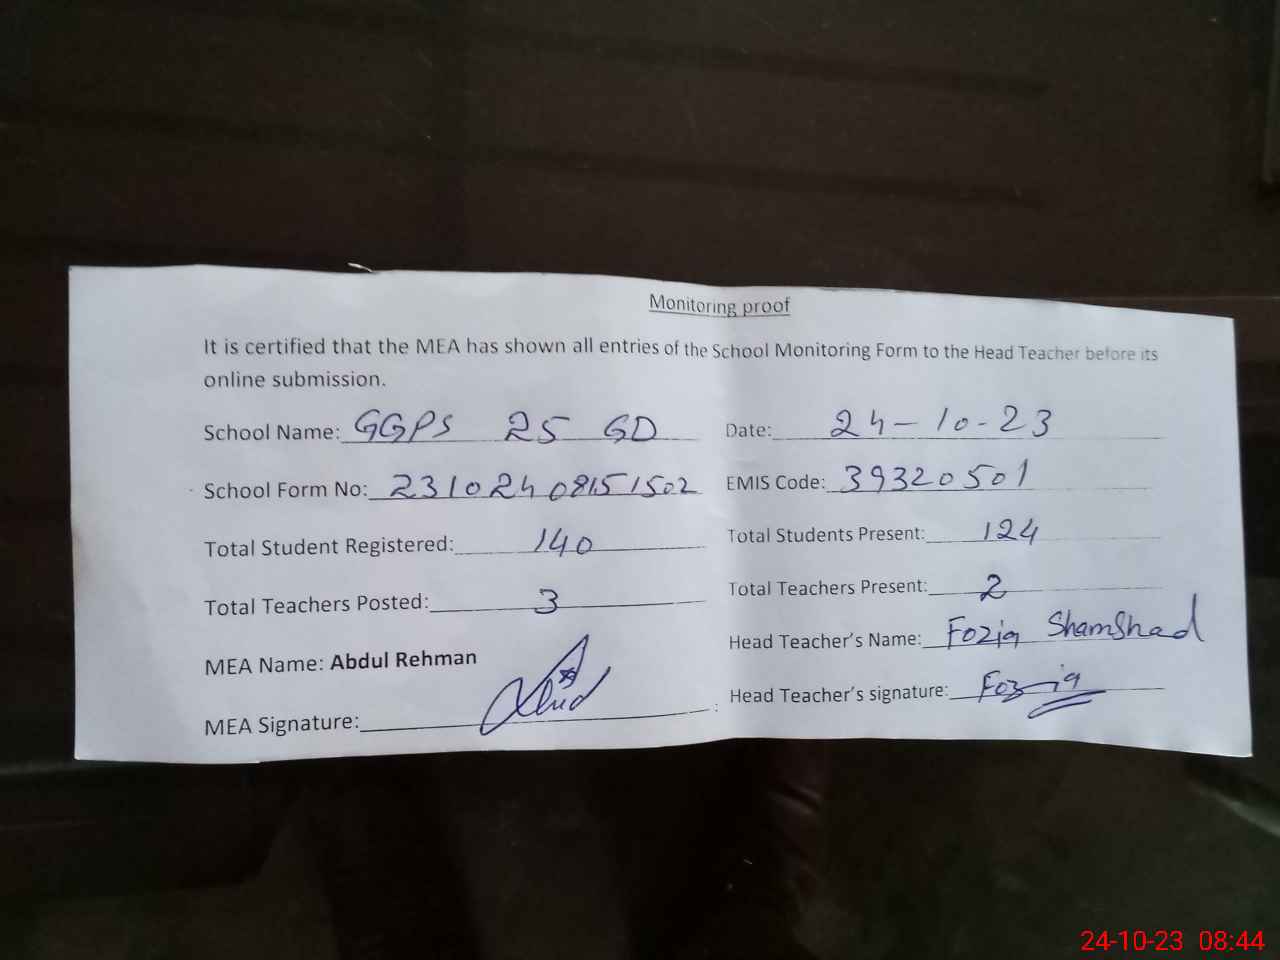 Monitoring proof
It is certified that the MEA has shown all entries of the School Monitoring Form to the Head Teacher before its
online submission.
School Name: GGPS 25 GD Date: 24-10-23
School Form No: 23102408151502 EMIS Code: 39320501
Total Student Registered: 140 Total Students Present: 124
Total Teachers Posted: 3 Total Teachers Present: 2
MEA Name: Abdul Rehman Head Teacher's Name: Fozia Shamshad
MEA Signature: Head Teacher's signature: Fozia
24-10-23 08:44